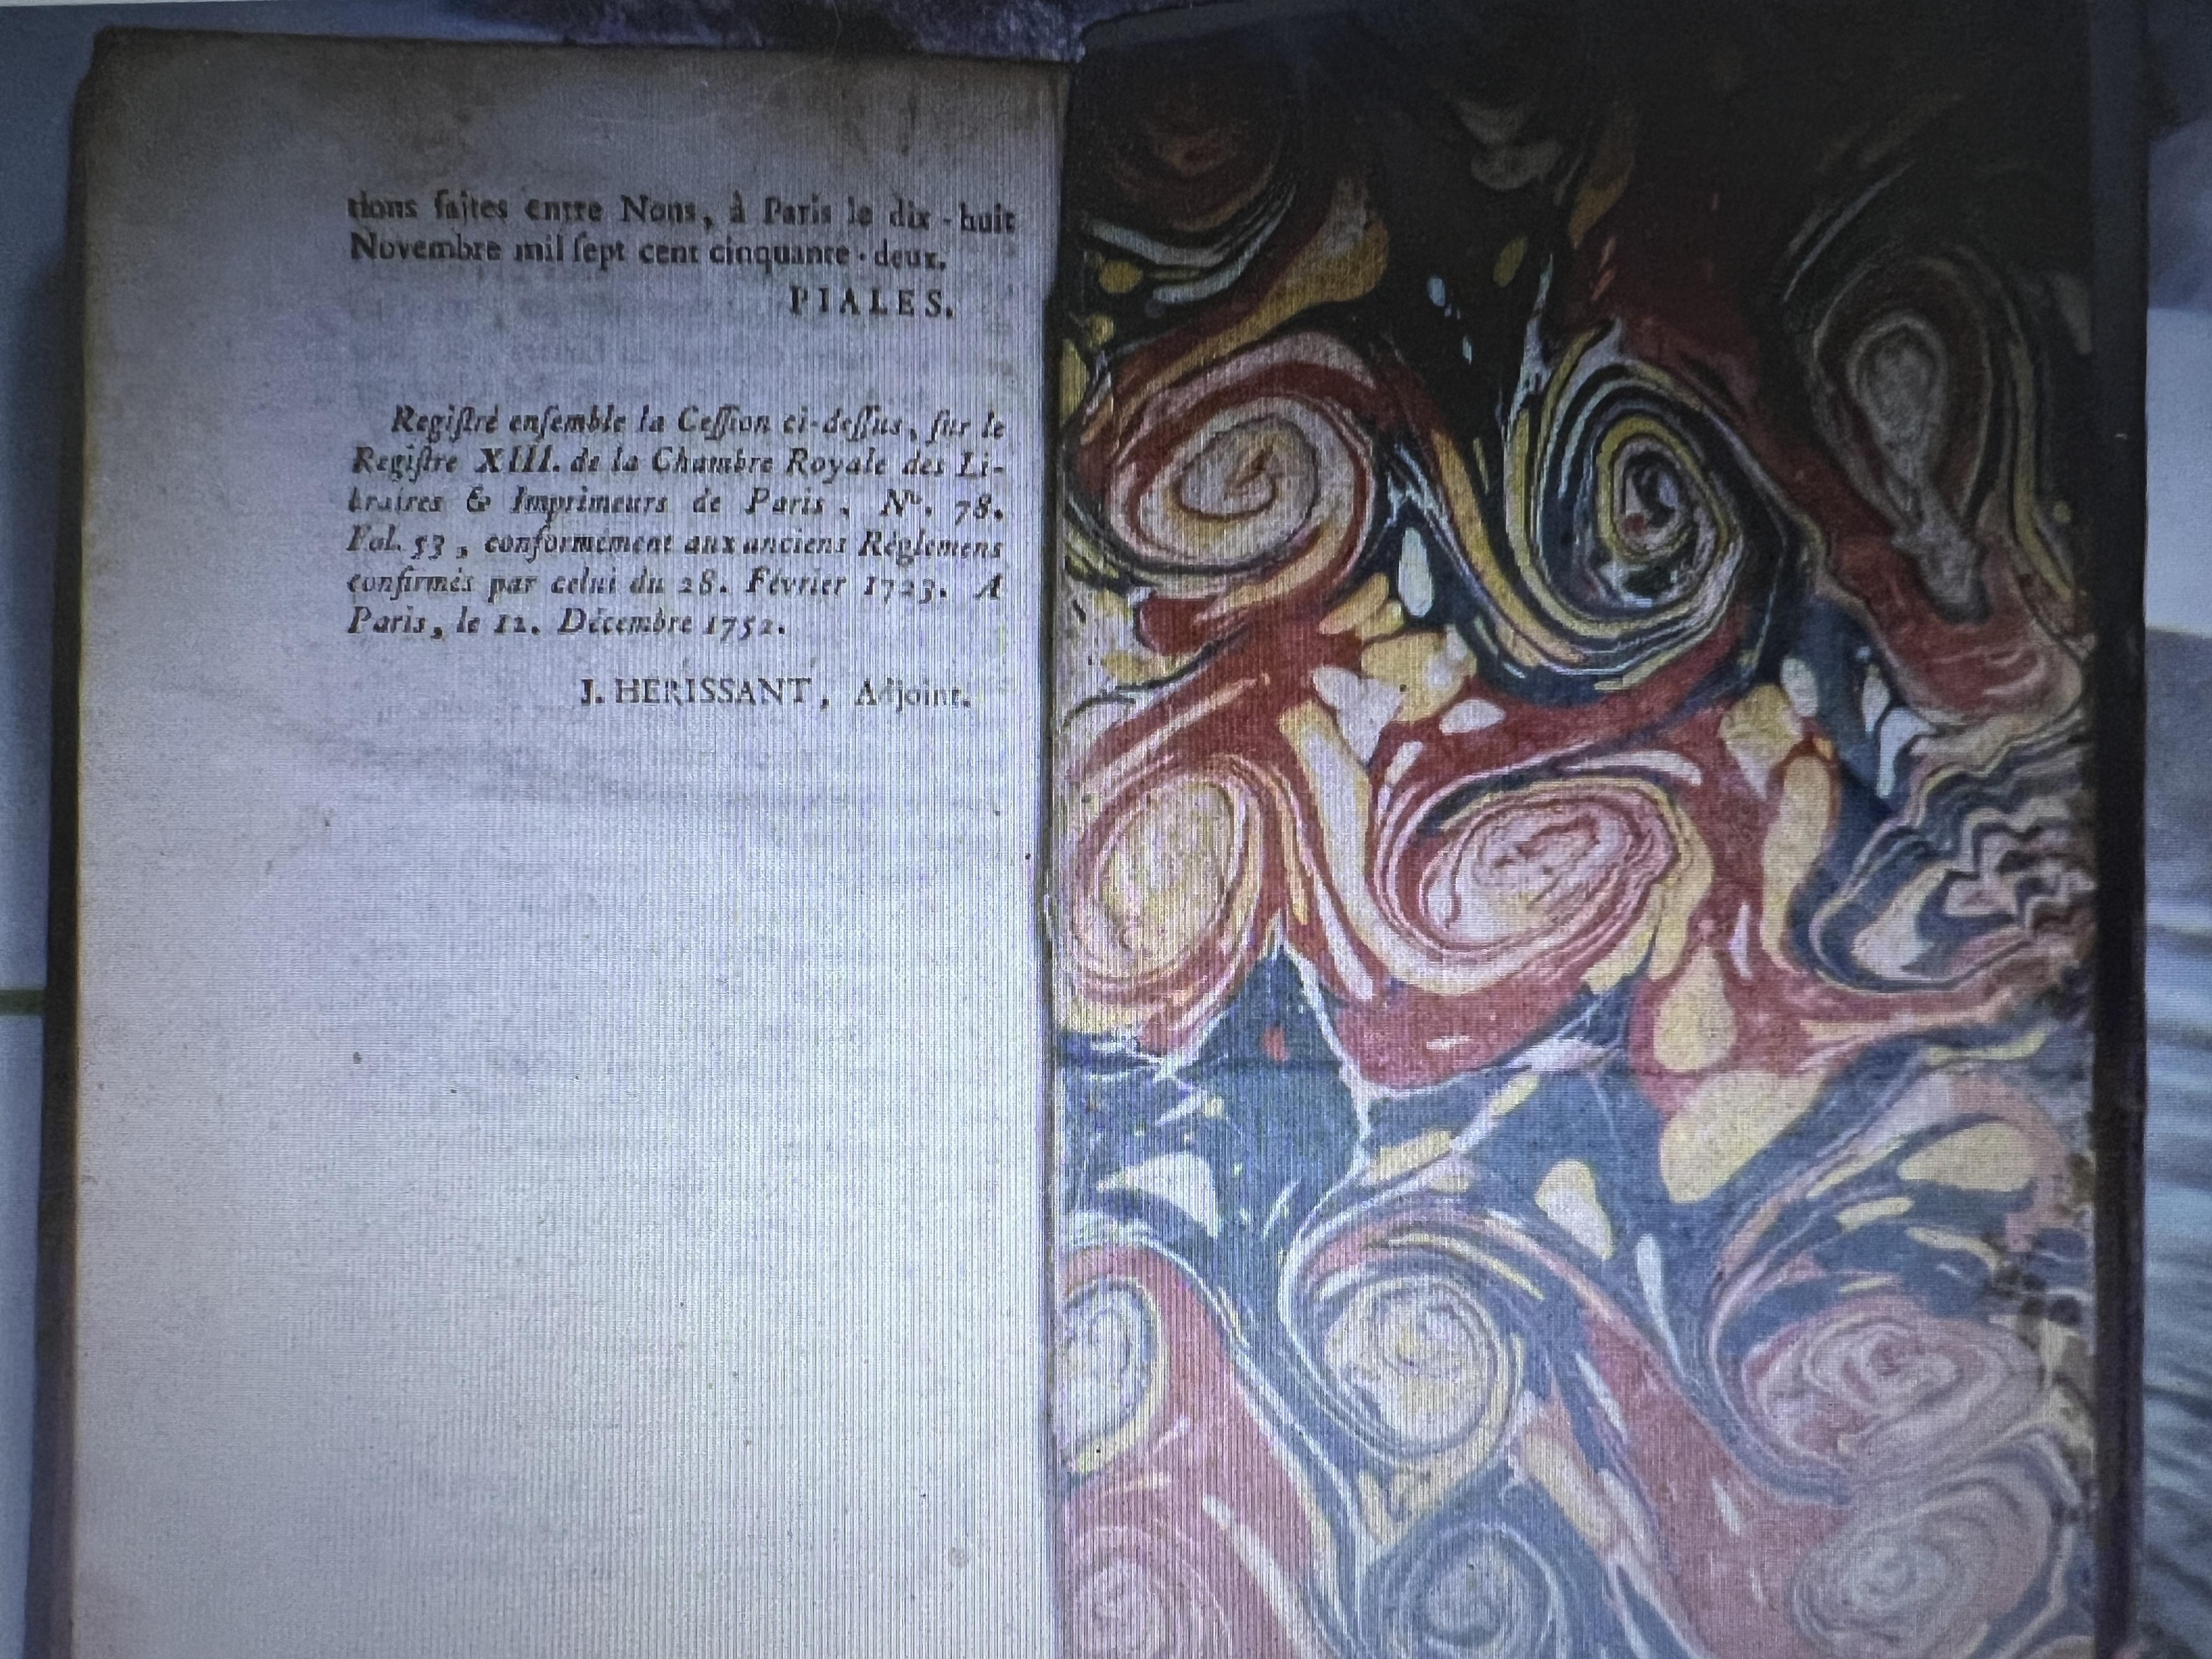 tions faites entre Nous, à Paris le dix-huit
Novembre mil ſept cent cinquante-deux.
PIALES.
Regiſtré enſemble la Ceſſion ci-deſſus, ſur le
Regiſtre XIII. de la Chambre Royale des Li-
braires & Imprimeurs de Paris, Nº. 78.
Fol. 53, conformément aux anciens Réglemens
confirmés par celui du 28. Février 1723. A
Paris, le 12. Décembre 1752.
J. HERISSANT, Adjoint.